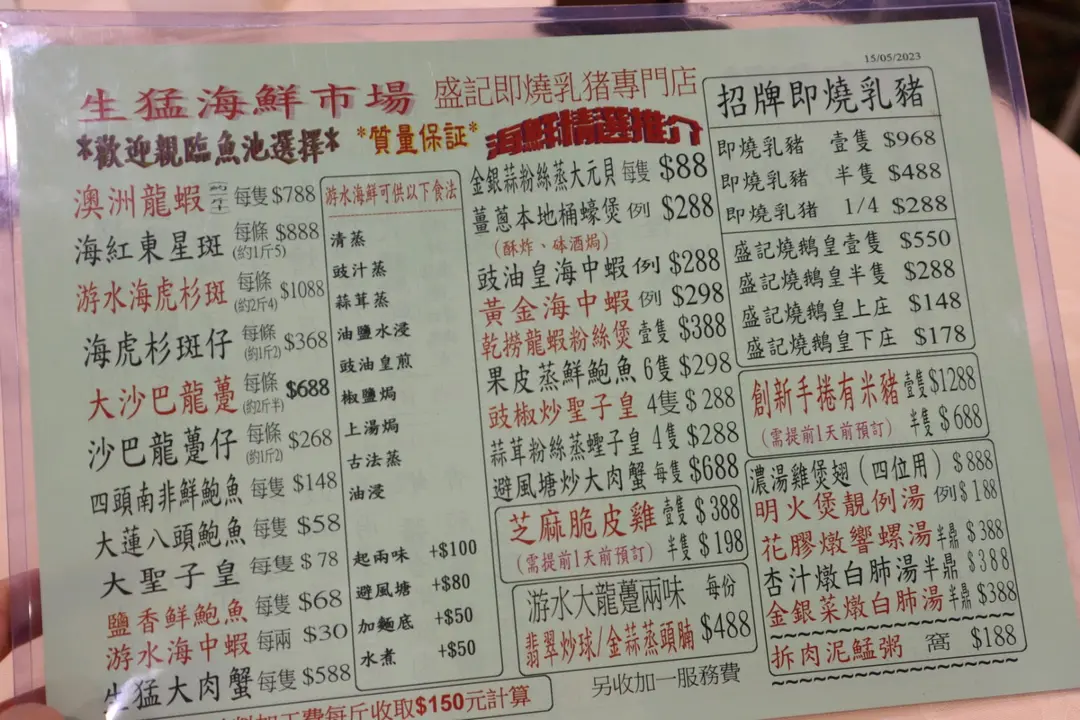 15/05/2023
生猛海鮮市場 盛記即燒乳豬專門店
*歡迎親臨魚池選擇* *質量保証*
澳洲龍蝦 約一斤 每隻 $788
海紅東星斑 每條 (約1斤5) $888
游水海虎杉斑 每條 (約2斤4) $1088
海虎杉斑仔 每條 (約1斤2) $368
大沙巴龍躉 每條 (約2斤半) $688
沙巴龍躉仔 每條 (約1斤2) $268
四頭南非鮮鮑魚 每隻 $148
大蓮八頭鮑魚 每隻 $58
大聖子皇 每隻 $78
鹽香鮮鮑魚 每隻 $68
游水海中蝦 每兩 $30
生猛大肉蟹 每隻 $588
加工費每斤收取$150元計算
游水海鮮可供以下食法
清蒸
豉汁蒸
蒜茸蒸
油鹽水浸
豉油皇煎
椒鹽焗
上湯焗
古法蒸
油浸
起兩味 +$100
避風塘 +$80
加麵底 +$50
水煮 +$50
海鮮精選推介
金銀蒜粉絲蒸大元貝 每隻 $88
薑蔥本地桶蠔煲 例 $288
(酥炸、砵酒焗)
豉油皇海中蝦 例 $288
黃金海中蝦 例 $298
乾撈龍蝦粉絲煲 壹隻 $388
果皮蒸鮮鮑魚 6隻 $298
豉椒炒聖子皇 4隻 $288
蒜茸粉絲蒸蟶子皇 4隻 $288
避風塘炒大肉蟹 每隻 $688
芝麻脆皮雞 壹隻 $388
(需提前1天前預訂) 半隻 $198
游水大龍躉兩味 每份
翡翠炒球/金蒜蒸頭腩 $488
另收加一服務費
招牌即燒乳豬
即燒乳豬 壹隻 $968
即燒乳豬 半隻 $488
即燒乳豬 1/4 $288
盛記燒鵝皇壹隻 $550
盛記燒鵝皇半隻 $288
盛記燒鵝皇上庄 $148
盛記燒鵝皇下庄 $178
創新手捲有米豬 壹隻 $1288
(需提前1天前預訂) 半隻 $688
濃湯雞煲翅 (四位用) $888
明火煲靚例湯 例 $188
花膠燉響螺湯 半鼎 $388
杏汁燉白肺湯 半鼎 $388
金銀菜燉白肺湯 半鼎 $388
拆肉泥鯭粥 窩 $188